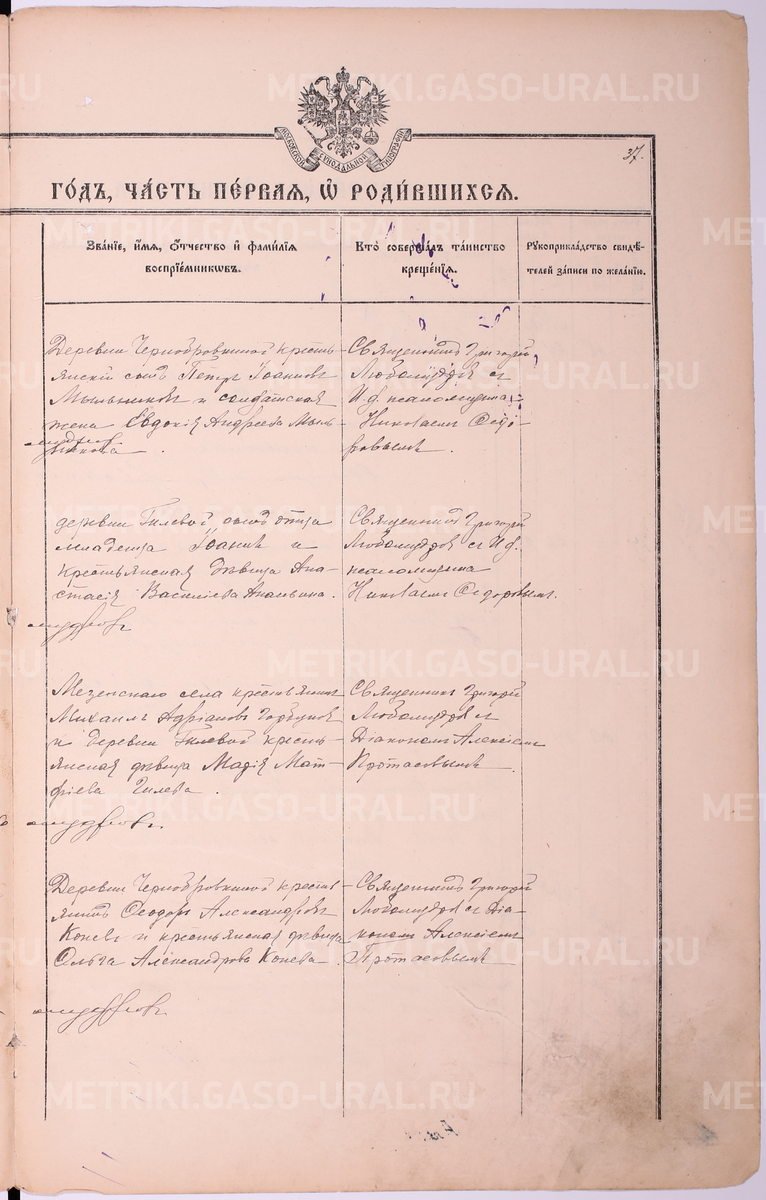 METRIKI.GASO-URAL.RU
МОСКОВСКОЙ СѴНОДАЛЬНОЙ ТИПОГРАФІИ
37.
ГО́ДЪ, ЧА́СТЬ ПЕ́РВАЯ, Ѡ҆ РОДИ́ВШИХСЯ.
Зва́нїе, и҆́мя, ѻ҆́тчество и҆ фами́лїя
воспрїе́мникѡвъ.
Кто̀ соверша́лъ та́инство
креще́нїя.
Рꙋкоприкла́дство свидѣ́-
телей за́писи по жела́нїю.
Деревни Чернобровкиной кресть-
янскій сынъ Петръ Іоанновъ
Мыльниковъ и солдатская
жена Евдокія Андреева Мыль-
никова.
Священникъ Григорій
Любомудровъ съ
И. д. псаломщика
Николаемъ Ѳедо-
ровымъ.
деревни Гилевой
младенца Іоаннъ и
крестьянская дѣвица Ана-
стасія Василіева
Священникъ Григорій
Любомудровъ съ И. д.
псаломщика
Николаемъ Ѳедоровымъ.
Мезенскаго села крестьянинъ
Михаилъ Адріановъ Горбуновъ
и деревни Гилевой кресть-
янская дѣвица Марія Мат-
фіева Гилева.
Священникъ Григорій
Любомудровъ съ
Діакономъ Алексіемъ
Протасовымъ.
Деревни Чернобровкиной кресть-
янинъ Ѳеодоръ Александровъ
Коневъ и крестьянская дѣвица
Ольга Александрова Конева.
Священникъ Григорій
Любомудровъ съ Діа-
кономъ Алексіемъ
Протасовымъ